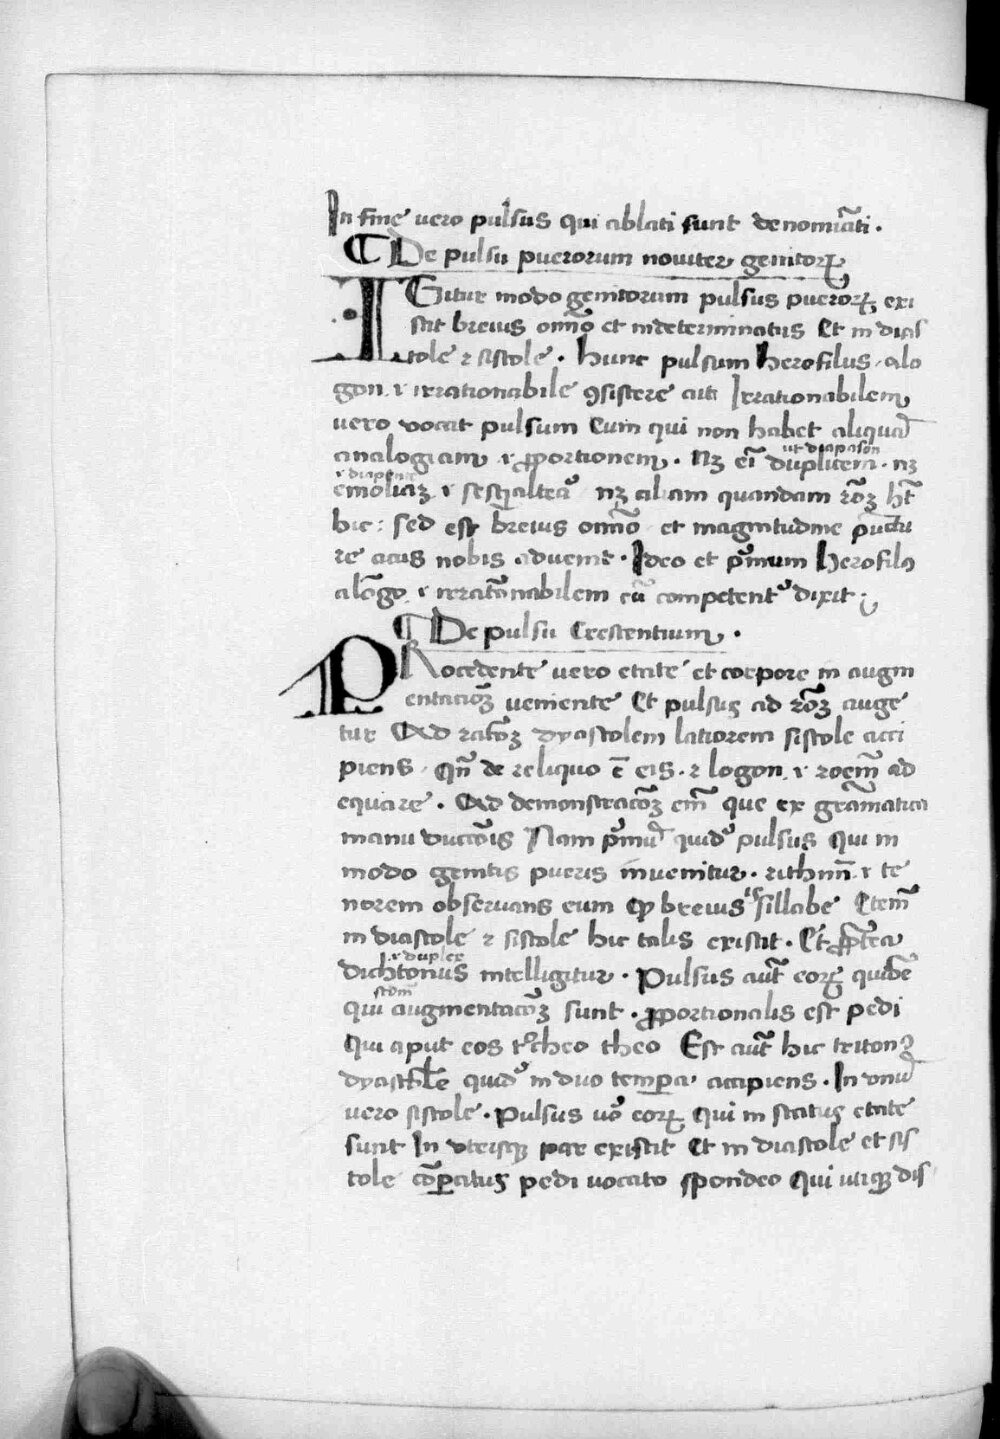 In fine vero pulsus qui ablati sunt denomiãti.
¶ De pulsu puerorum noviter genitorꝝ
IGitur modo genitorum pulsus puerorꝝ exi
stit breuis om̃ino et indeterminatus Et in dias
tole ⁊ sistole. hunc pulsum herofilus alo
gon .i. irrationabile ꝯsistere ait Irrationabilem
vero vocat pulsum Cum qui non habet aliquã
ut diapason
analogiam .i. ꝓportionem. Nꝫ eĩ duplicem. nꝫ
.i. diapente
emoliaꝫ .i. sesq̃alteã nꝫ aliam quandam rõꝫ hꝫ
hic: sed est breuis om̃ino et magnitudine punctu
re acus nobis advenit. Ideo et p̃mum herofilꝯ
alõgo .i. irratõnabilem eũ competent̾ dixit
¶ De pulsu Crescentium.
PRocedente vero etate et corpore in augm
entacõꝫ veniente Et pulsus ad rõꝫ auge
tur Ad ratõꝫ dyastolem latiorem sistole acci
piens. Qñ de reliquo ẽ eis .i. logon .i. roem̃ ad
equare. Ad demonstracõꝫ em̃ que ex gramatica
manu ductõis Nam p̃mũ quidẽ pulsus Qui in
modo genitis pueris invenitur. rithmũ .i. te
norem observans eum qꝫ breuis sillabe Etem̃
in diastole ⁊ sistole hic talis existit. Et ꝓpterea
.i. duplex
dichtonus intelligitur. Pulsus aut̃ eorꝝ quidẽ
scdm̃
qui augmentacõꝫ sunt. ꝓportionalis est pedi
Qui aput eos t̾cheo theo Est aut̃ hic tritonꝯ
dyastole quidẽ in duo tempora accipiens. In vnũ
vero sistole. Pulsus vo eorꝝ Qui in status etate
sunt In vterisqꝫ par existit Et in diastole et sis
tole cõparatus pedi vocato spondeo Qui utrisqꝫ dis